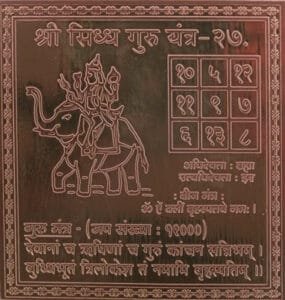 श्री सिध्ध गुरु यंत्र-२७.
१० ५ १२
११ ९ ७
६ १३ ८
अधिदेवता :
: बीज मंत्र :
ॐ ऐं क्लीं बृहस्पतये नमः।
गुरु मंत्र - (जप संख्या : १९०००)
देवानां च ऋषिणां च गुरुं कांचन सन्निभम् ।
बुध्धिभूतं त्रिलोकेशं तं नमामि बृहस्पतिम् ।